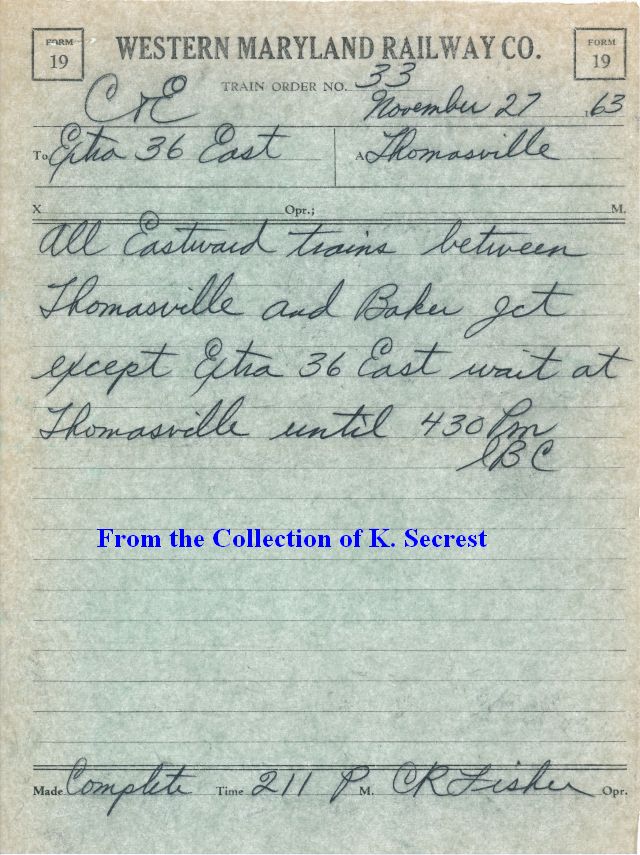 FORM 19 WESTERN MARYLAND RAILWAY CO. FORM 19
TRAIN ORDER NO. 33
C&E November 27 163
To Extra 36 East At Thomasville
X Opr.; M.
All Eastward trains between
Thomasville and Baker Jct
except Extra 36 East wait at
Thomasville until 430 Pm
From the Collection of K. Secrest
Made Complete Time 211 P M. CR Fisher Opr.